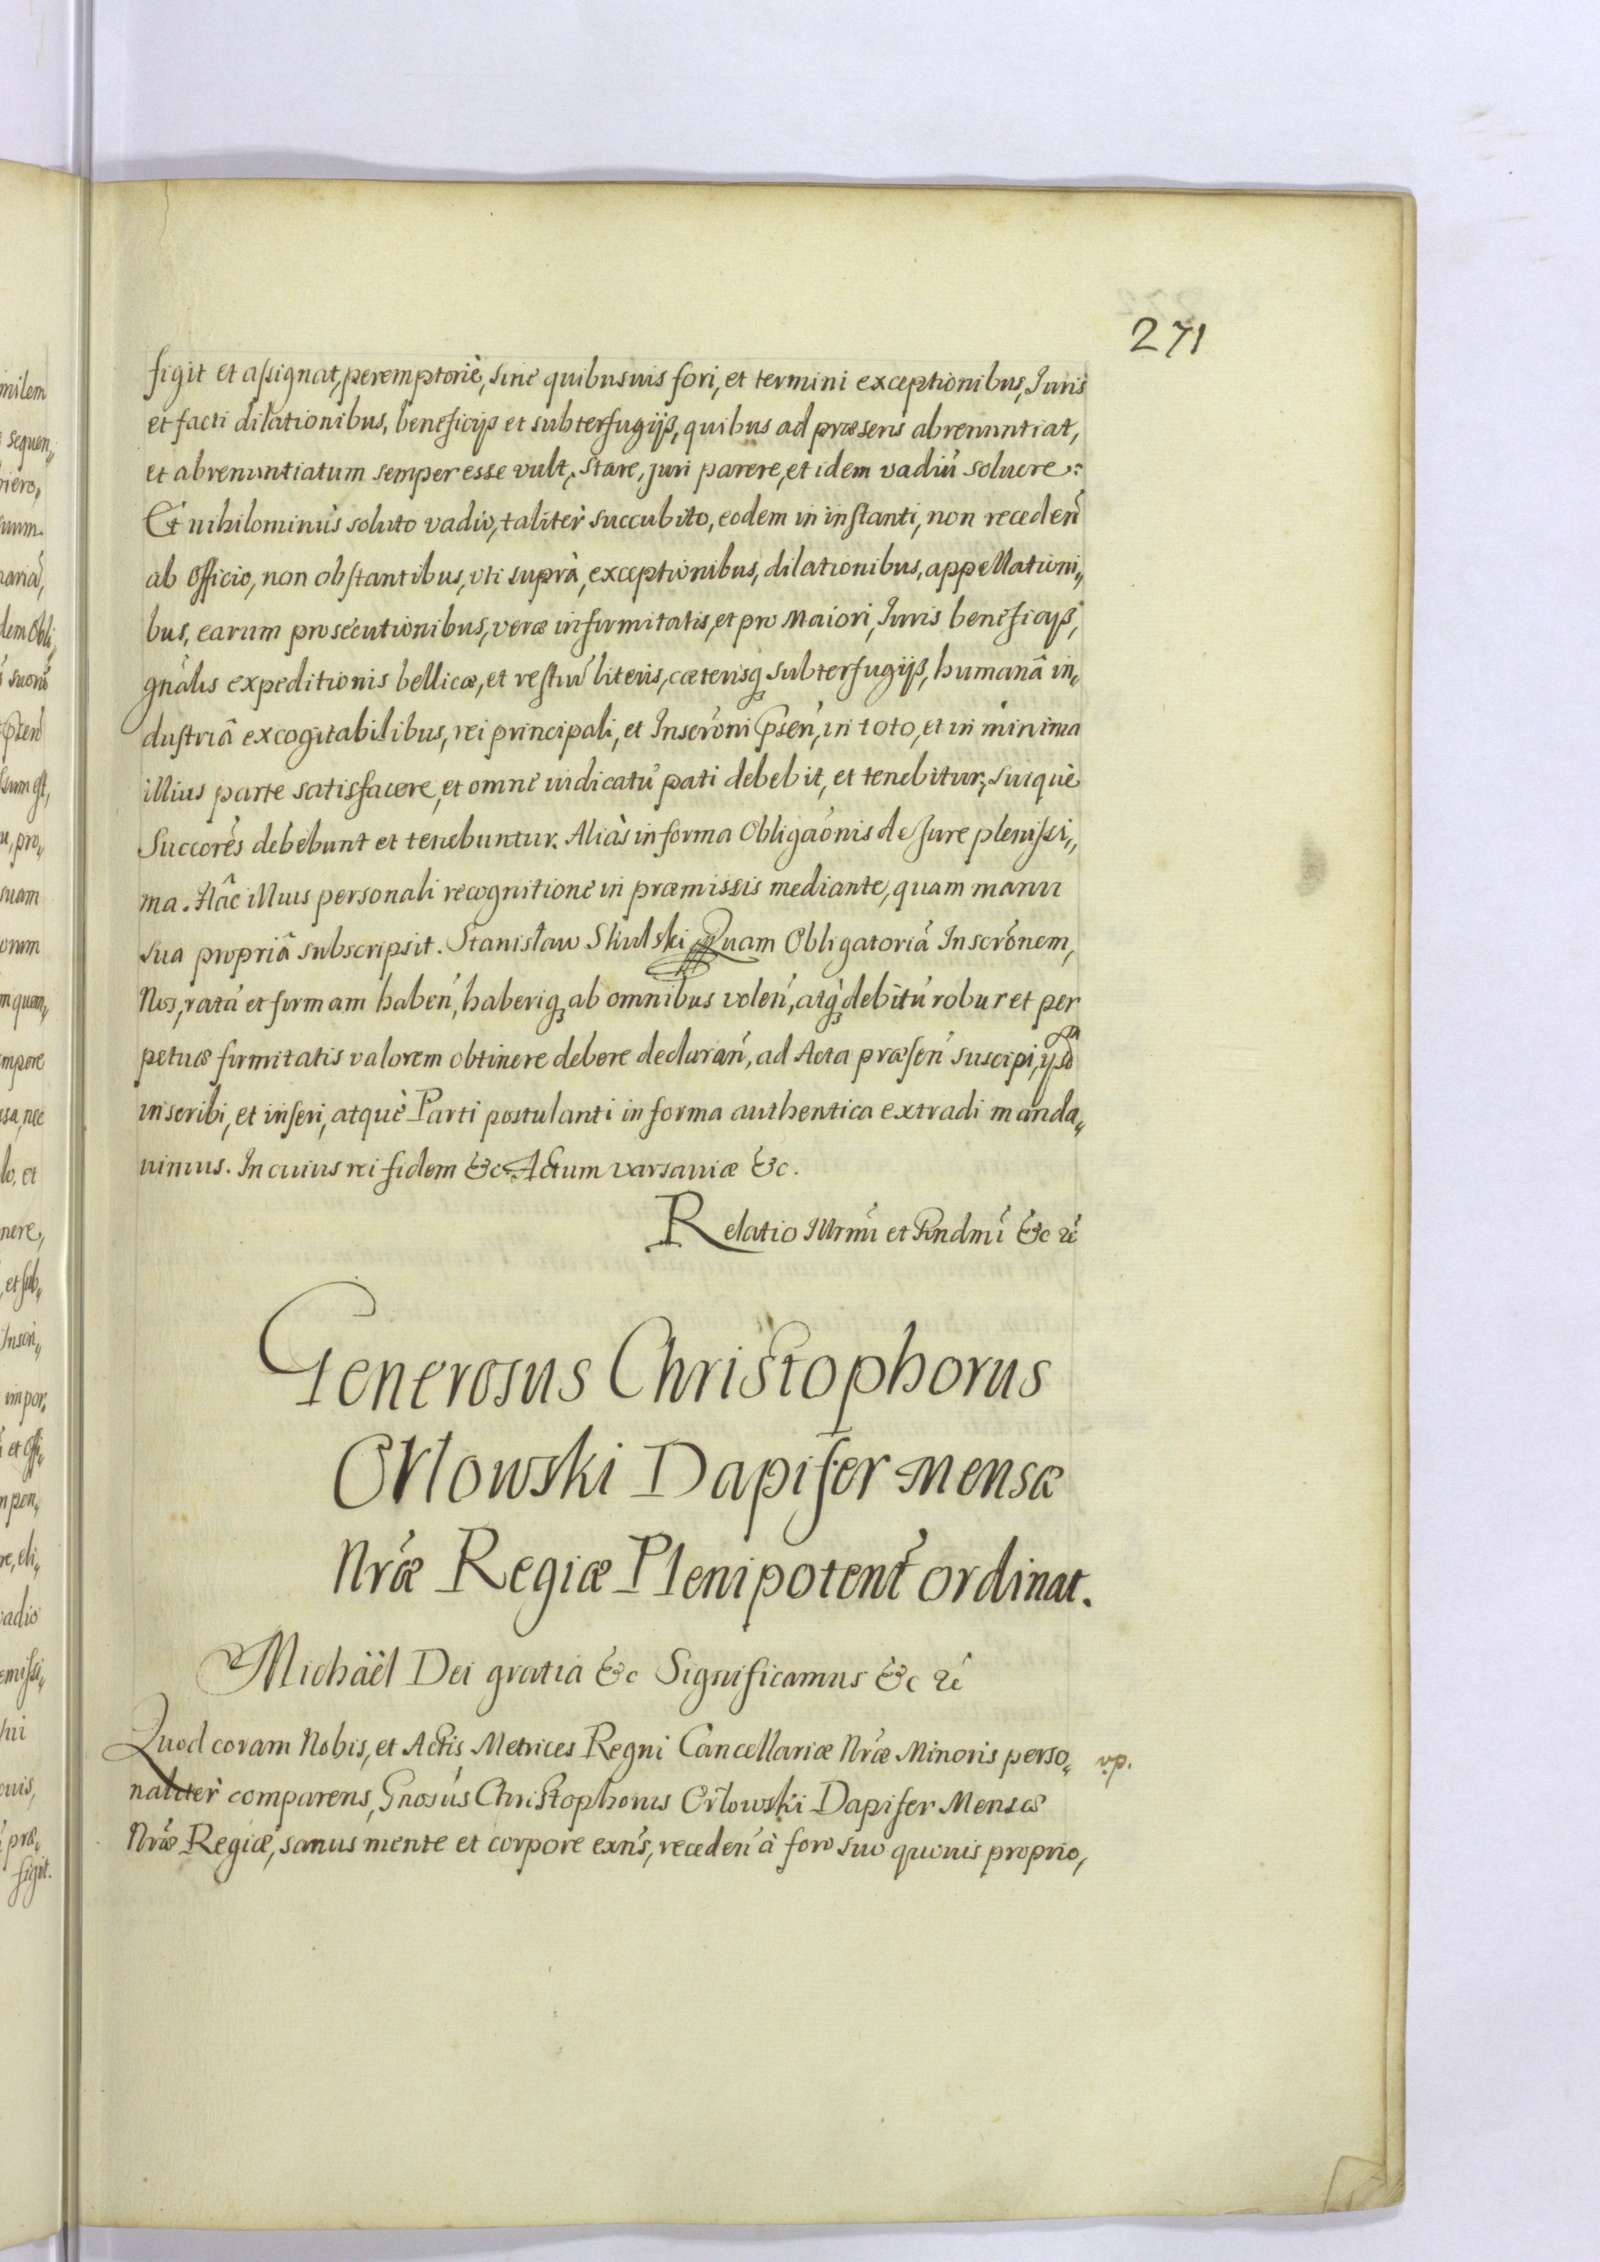 271
figit et assignat, peremptoriè, sine quibusuis fori, et termini exceptionibus, Juris
et facti dilationibus, beneficijs et subterfugijs, quibus ad præsens abrenuntiat,
et abrenuntiatum semper esse vult, stare, juri parere, et idem vadiú soluere.
Et nihilominùs soluto vadio, taliter succubito, eodem in instanti, non receden
ab Officio, non obstantibus, vti suprà, exceptionibus, dilationibus, appellationi„
bus, earum prosecutionibus, veræ infirmitatis, et pro Maiori, Juris beneficijs,
gnàlis expeditionis bellicæ, et restiu literis, cæterisq subterfugijs, humanâ in„
dustriâ excogitabilibus, rei principali, et Inscróni Psen, in toto, et in minima
illius parte satisfacere, et omne iudicatú pati debebit, et tenebitur, suiquè
Succorés debebunt et tenebuntur. Aliàs in forma Obligaónis de Jure plenissi„
ma. Hâc illius personali recognitione in præmissis mediante, quam manu
sua propriâ subscripsit. Stanisław Skulski Quam Obligatoriá Inscrónem,
Nos, ratá et firmam haben, haberiq ab omnibus volen, atq debitú robur et per
petuæ firmitatis valorem obtinere debere declaran, ad Acta præsen suscipi,
inscribi, et inseri, atquè Parti postulanti in forma authentica extradi manda„
uimus. In cuius rei fidem &c. Actum varsauiæ &c.
Relatio Illrmi et Rndmi &c
Generosus Christophorus
Orłowski Dapifer Mensæ
Nræ Regiæ Plenipotent ordinat.
Michaël Dei gratia &c Significamus &c
Quod coram Nobis, et Actis Metrices Regni Cancellariæ Nræ Minoris perso„
v.p.
naliter comparens, Gnosus Christophorus Orłowski Dapifer Mensæ
Nræ Regiæ, sanus mente et corpore exns, receden à foro suo quouis proprio,